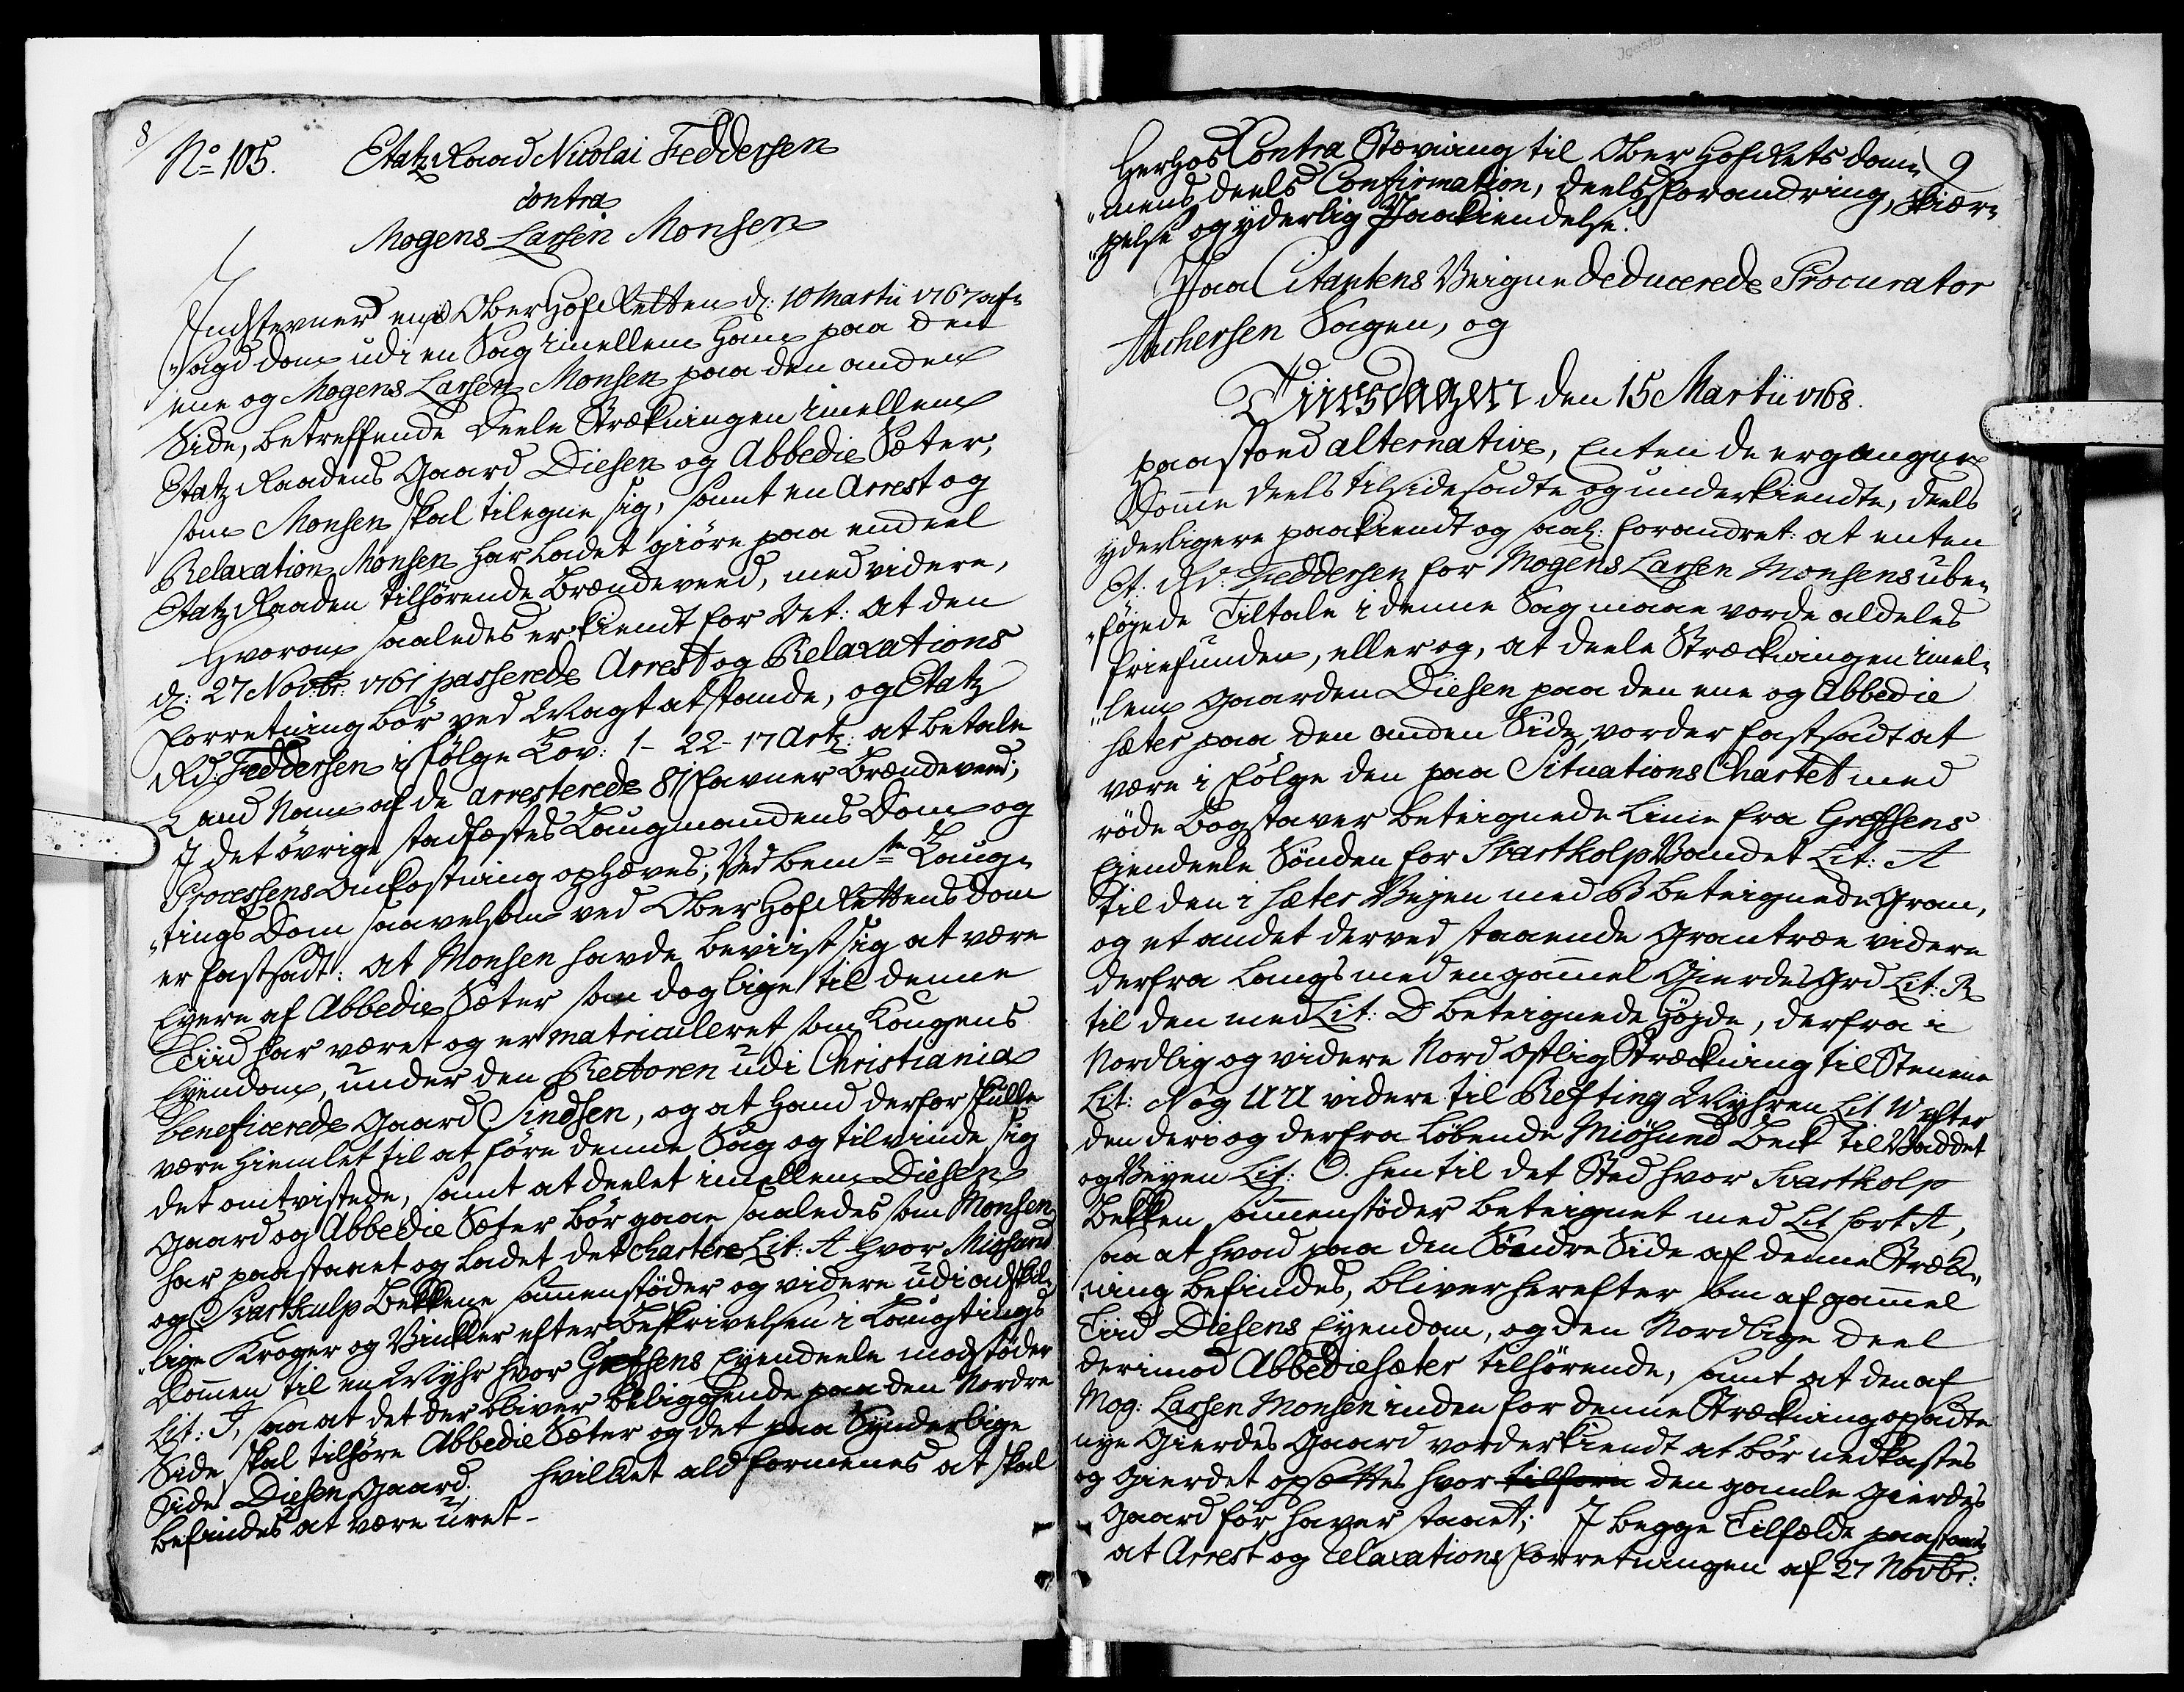 8
No 105. Etatz Raad Nicolai Feddersen
contra
Mogens Larsen Monsen
Indstevner en ved OberHof Retten d: 10 Martii 1767 af-
"sagd dom udi en Sag imellem ham paa den
ene og Mogens Larsen Monsen paa den anden
Side, betreffende Deele Strækningen imellem
Etatz Raadens Gaard Diesen og Abbedie Sæter,
som Monsen skal tilegne sig, samt en Arrest og
Relaxation Monsen har ladet giöre paa endeel
Etatz Raaden tilhørende Brændeveed, med videre,
Hvorom saaledes er kiendt for Ret: At den
d: 27 Novbr: 1761 passerede Arrest og Relaxations
Forretning bör ved Magt at stande, og Etatz
Rd: Feddersen ifölge Lov: 1- 22- 17 Art: at betale
Land Nam af de arresterede 81 favner Brændeveed;
I det øvrige stadfæstes Laugmandens Dom og
Processens Omkostning ophæves; Ved bemte Laug-
"tings Dom saavelsom ved Ober Hof Rettens dom
er fastsadt: At Monsen havde beviist sig at være
Eyere af Abbedie Sæter som dog lige til denne
Tiid har været og er matriculeret som Kongens
Eyendom, under den Rectoren udi Christiania
beneficerede Gaard Sindsen, og at hand derfor skulle
være hiemlet til at före denne Sag og tilvinde sig
det omtvistede, samt at deelet imellem Diesen
Gaard og Abbedie Sæter bör gaae saaledes som Monsen
har paastaaet og ladet det Chartere Lit: A hvor Miösund
og Svartkulp Bekkene sammenstöder og videre udi adskil-
"lige Kroger og Vinkler efter Beskrivelsen i Laugtings
Dommen til en Myhr hvor Grefsens Eyendeele modstöder
Lit: I, saa at det der bliver beliggende paa den Nordre
Side skal tilhöre Abbedie Sæter og det paa Synderlige
Side Diesen Gaard. Hvilket ald formenes at skal
befindes at være uret-
9
Herhos Contra Stævning til Ober Hof Rets dom-
"mens deels Confirmation, deels Forandring, skiær-
"pelse og yderlig Paakiendelse.
Paa Citantens Veigne deducerede Procurator
Anchersen Sagen, og
Tiirsdagen den 15 Martii 1768.
paastoed alternative, Enten de ergangne
Domme deels tilsidesadte og underkiendte, deels
yderligere paakiendt og saal: forandret: at enten
Et: Rd: Feddersen for Mogens Larsen Monsens ube-
"föyede Tiltale i denne Sag maae vorde aldeles
friefunden, eller og, at deele Strækningen imel-
"lem Gaarden Diesen paa den ene og Abbedie
sæter paa den anden Side, vorder fastsadt at
være i fölge den paa Situations Chartet med
röde Bogstaver beteignede Linie fra Grefsens
Eyendeele Sönden for Svartkolp Vandet Lit: A
til den i Sæter Veyen med B beteignede Gran,
og et andet derved staaende Grantræe videre
derfra langs med en gammel Gierdes Grd Lit: R
til den med Lit: D beteignede Höyde, derfra i
Nordlig og videre Nord ostlig Strækning til Stenene
Lit: N og UU videre til Refting Myhren Lit W efter
den deri og derfra løbende Miösund Beck til Vaddet
og Veyen Lit: O. hen til det Sted hvor Svartkolp
Bekken sammenstöder beteignet med Lit sort A,
saa at hvad paa den Söndre Side af denne Stræk-
"ning befindes, bliver herefter som af gammel
Tiid Diesens Eyendom, og den Nordlige deel
derimod Abbediesæter tilhørende, samt at den af
Mog: Larsen Monsen inden for denne Strækning opsadte
nye Gierdes Gaard vorder kiendt at bör nedkastes
og Gierdet opsættes hvor tilforn den gamle Gierdes
Gaard för haver staaet; I begge Tilfælde paastaaes
at Arrest og relaxations forretningen af 27 Novbr: